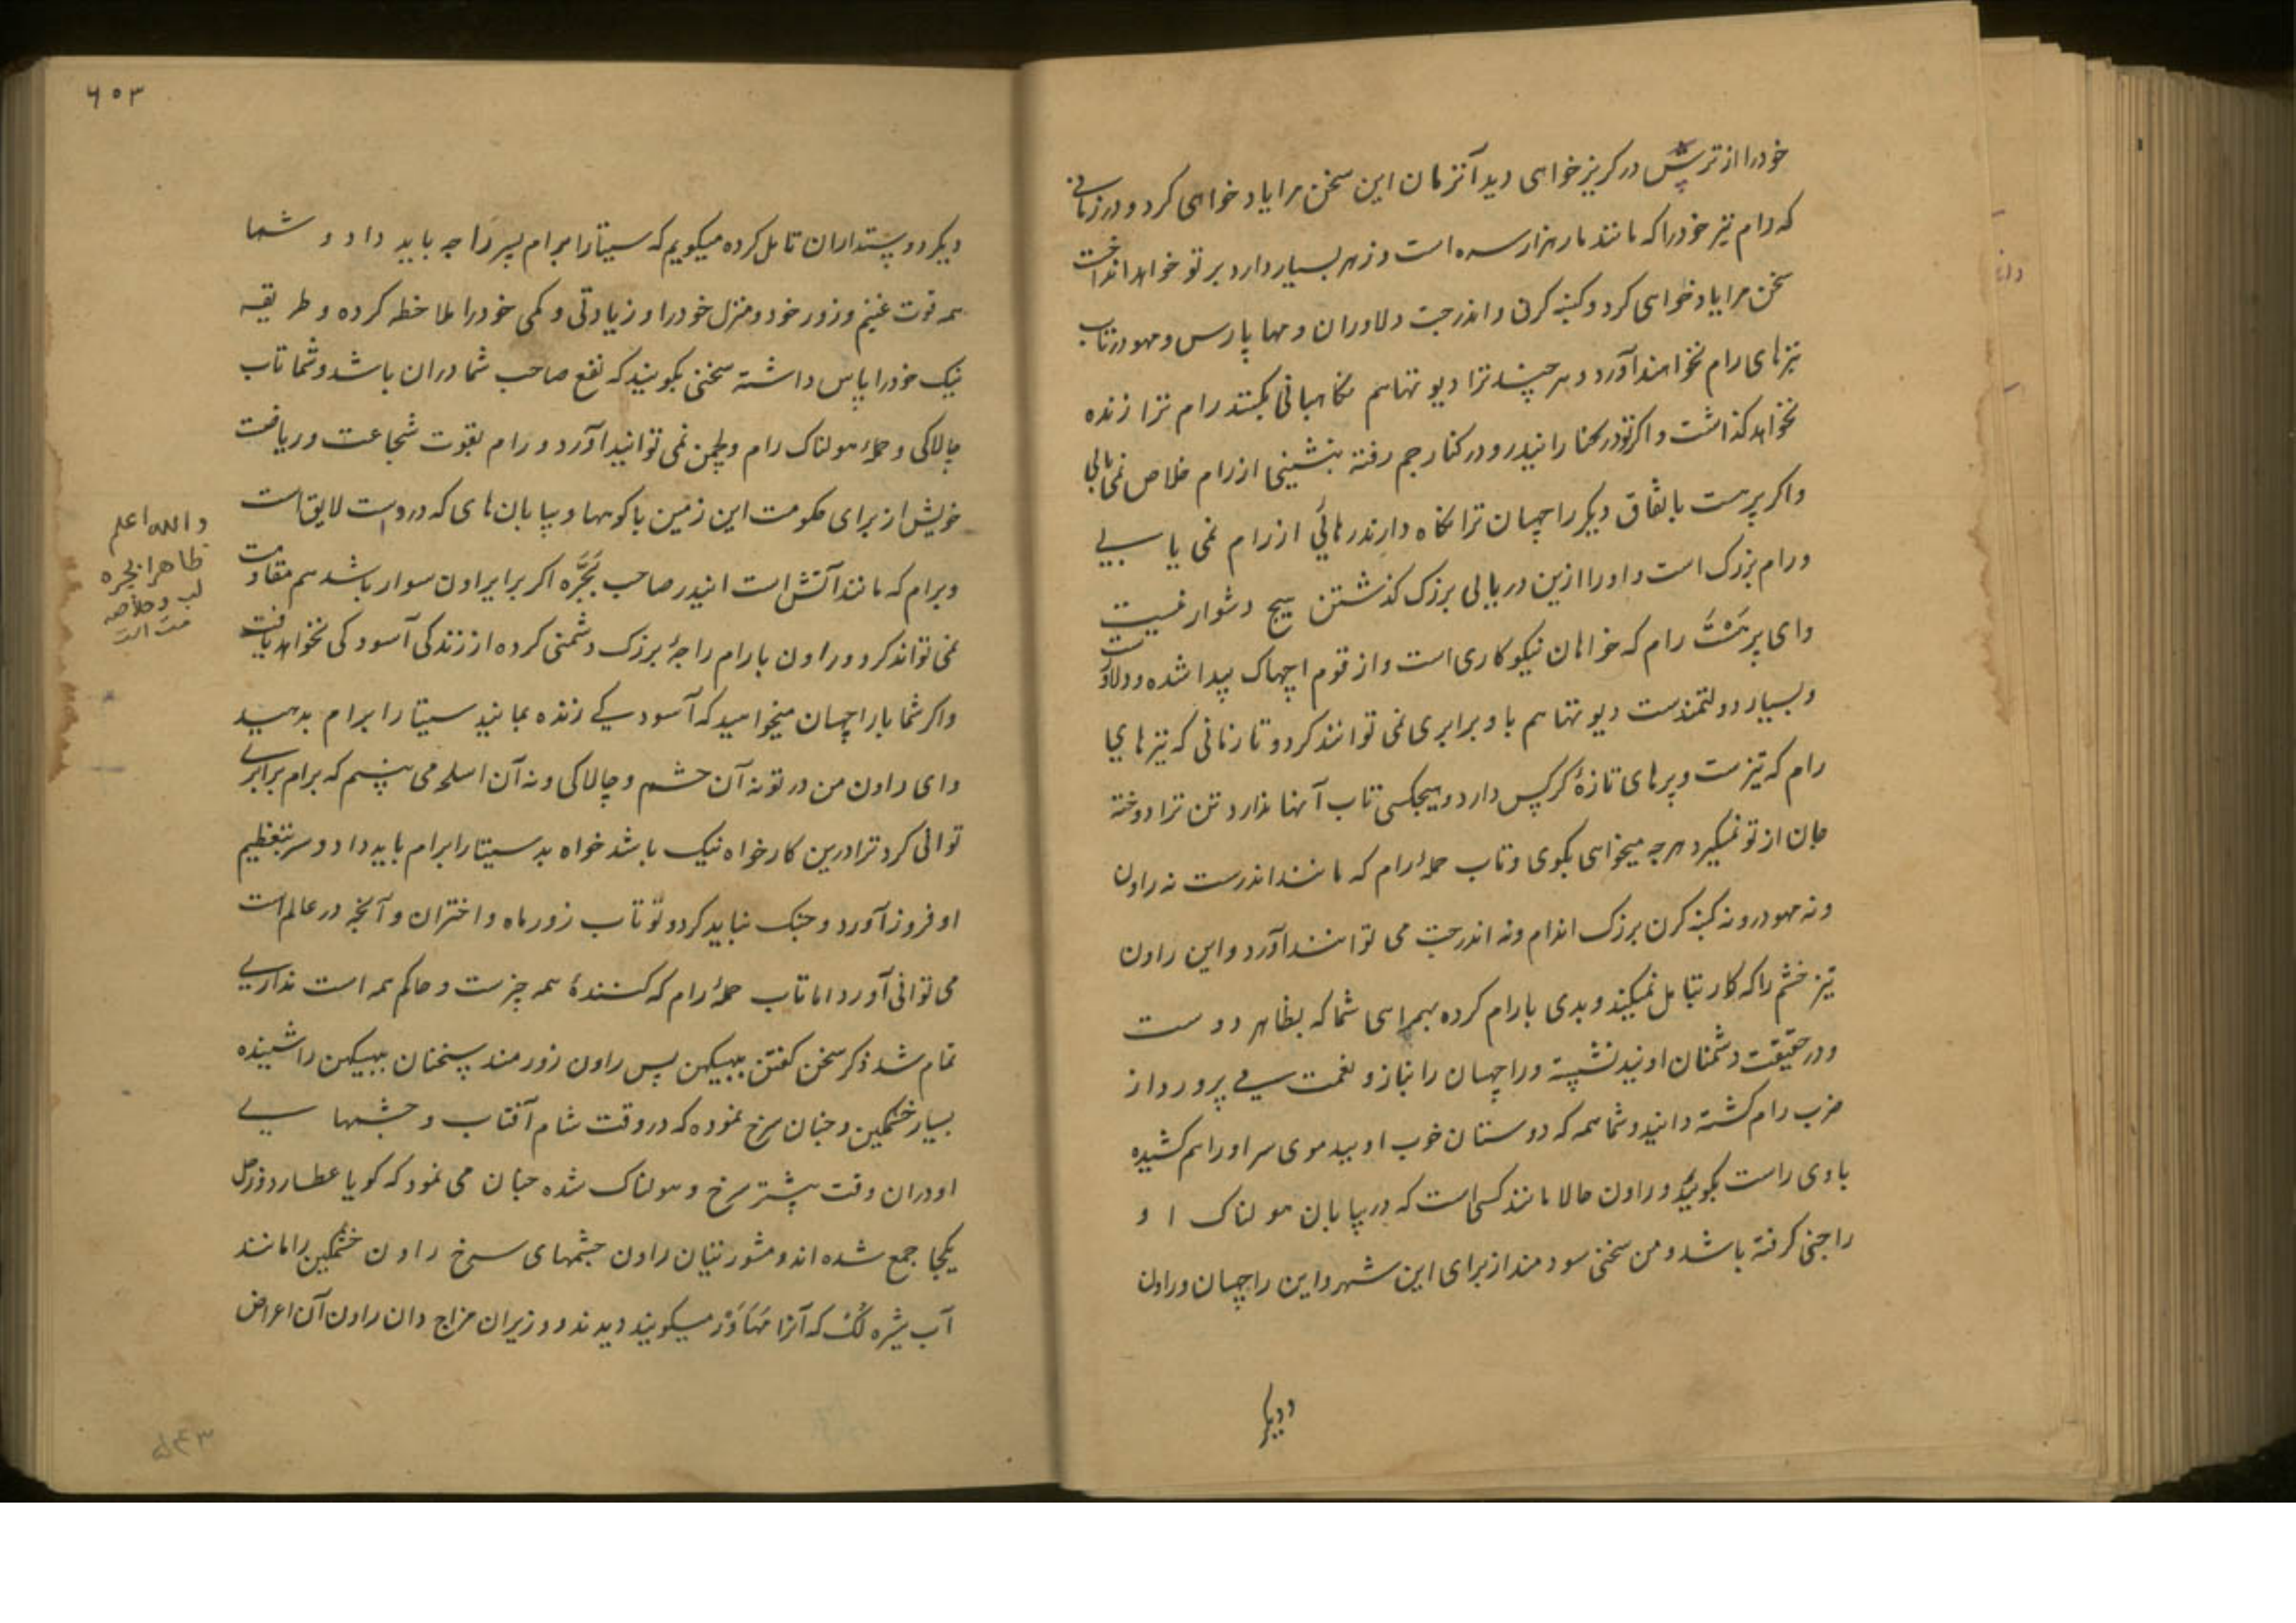 خود را از ترس در کریز خواهی دید آنزمان این سخن مرا یاد خواهی کرد و در زمانی
که رام تیر خود را که مانند مار هزار سره است و زهر بسیار دارد بر تو خواهد انداخت
سخن مرا یاد خواهی کرد و کنبه کرن و اندرجت دلاوران و مها پارس و مهودر تاب
تیرهای رام نخواهند آورد و هر چند ترا دیوتها هم نکاهبانی بکنند رام ترا زنده
نخواهد کذاشت و اکر تو در رفته بنشینی از رام خلاص نمی یابی
واکر پرهست باتفاق دیکر راچهسان ترا نکاه دارند رهائی از رام نمی یابی
و رام بزرک است و او را ازین دریای بزرک کذشتن هیچ دشوار نیست
وای پرهست رام که خواهان نیکوکاری است و از قوم اچهاک پیدا شده و دلاورست
و بسیار دولتمندست دیوتها هم با و برابری نمی توانند کرد و تا زمانی که تیرهای
رام که تیزست و پرهای تازهٔ کرکس دارد و هیچکسی تاب آنها ندارد تن ترا دوخته
جان از تو نمیکیرد هر چه میخواهی بکوی و تاب حملهٔ رام که مانند اندرست نه راون
و نه مهودر و نه کنبه کرن بزرک اندام و نه اندرجت می توانند آورد و این راون
تیز خشم را که کار بتامل نمیکند و بدی با رام کرده بهمراهی شما که بظاهر دوست
و در حقیقت دشمنان اوئید نشسته و راچهسان را بناز و نعمت می پرورد از
ضرب رام کشته دانید و شما همه که دوستان خوب اوئید موی سر او را هم کشیده
با وی راست بکوئید و راون حالا مانند کسی است که در بیابان هولناک او
را جنی کرفته باشد و من سخنی سودمند از برای این شهر و این راچهسان و راون
و دیکر
۶۰۳
دیکر دوستداران تامل کرده میکویم که سیتا را برام پسر راجه باید داد و شما
همه قوت غنیم و زور خود و منزل خود را و زیادتی و کمی خود را ملاحظه کرده و طریقه
نیک خود را پاس داشته سخنی بکوئید که نفع صاحب شما دران باشد و شما تاب
چالاکی و حملهٔ هولناک رام و لچمن نمی توانید آورد و رام بقوت شجاعت و ریاضت
خویش از برای حکومت این زمین با کوهها و بیابان های که دروست لایق است
و برام که مانند آتش است اندر صاحب بجره اکر بر ایراون سوار باشد هم مقاومت
نمی تواند کرد و راون با رام راجهٔ بزرک دشمنی کرده از زندکی آسودکی نخواهد یافت
واکر شما با راچهسان میخواهید که آسودکی زنده بمانید سیتا را برام بدهید
وای راون من در تو نه آن خشم و چالاکی و نه آن اسلحه می بینم که برام برابری
توانی کرد ترا درین کار خواه نیک باشد خواه بد سیتا را برام باید داد و سر بتعظیم
او فرود آورد و جنک نباید کرد و تو تاب زور ماه و اختران و آنچه در عالم است
می توانی آورد اما تاب حملهٔ رام که کنندهٔ همه چیزست و حاکم همه است نداری
تمام شد ذکر سخن کفتن ببیکهن پس راون زورمند سخنان ببیکهن را شنیده
بسیار خشمکین و چنان سرخ نموده که در وقت شام آفتاب و چشمهای
او دران وقت بیشتر سرخ و هولناک شده چنان می نمود که کویا عطارد و زحل
یکجا جمع شده اند و مشورتیان راون چشمهای سرخ راون خشمکین را مانند
آب شیره که آنرا میکویند دیدند و وزیران مزاج دان راون آن اعراض
والله اعلم
ظاهرا بجره
۵۴۳